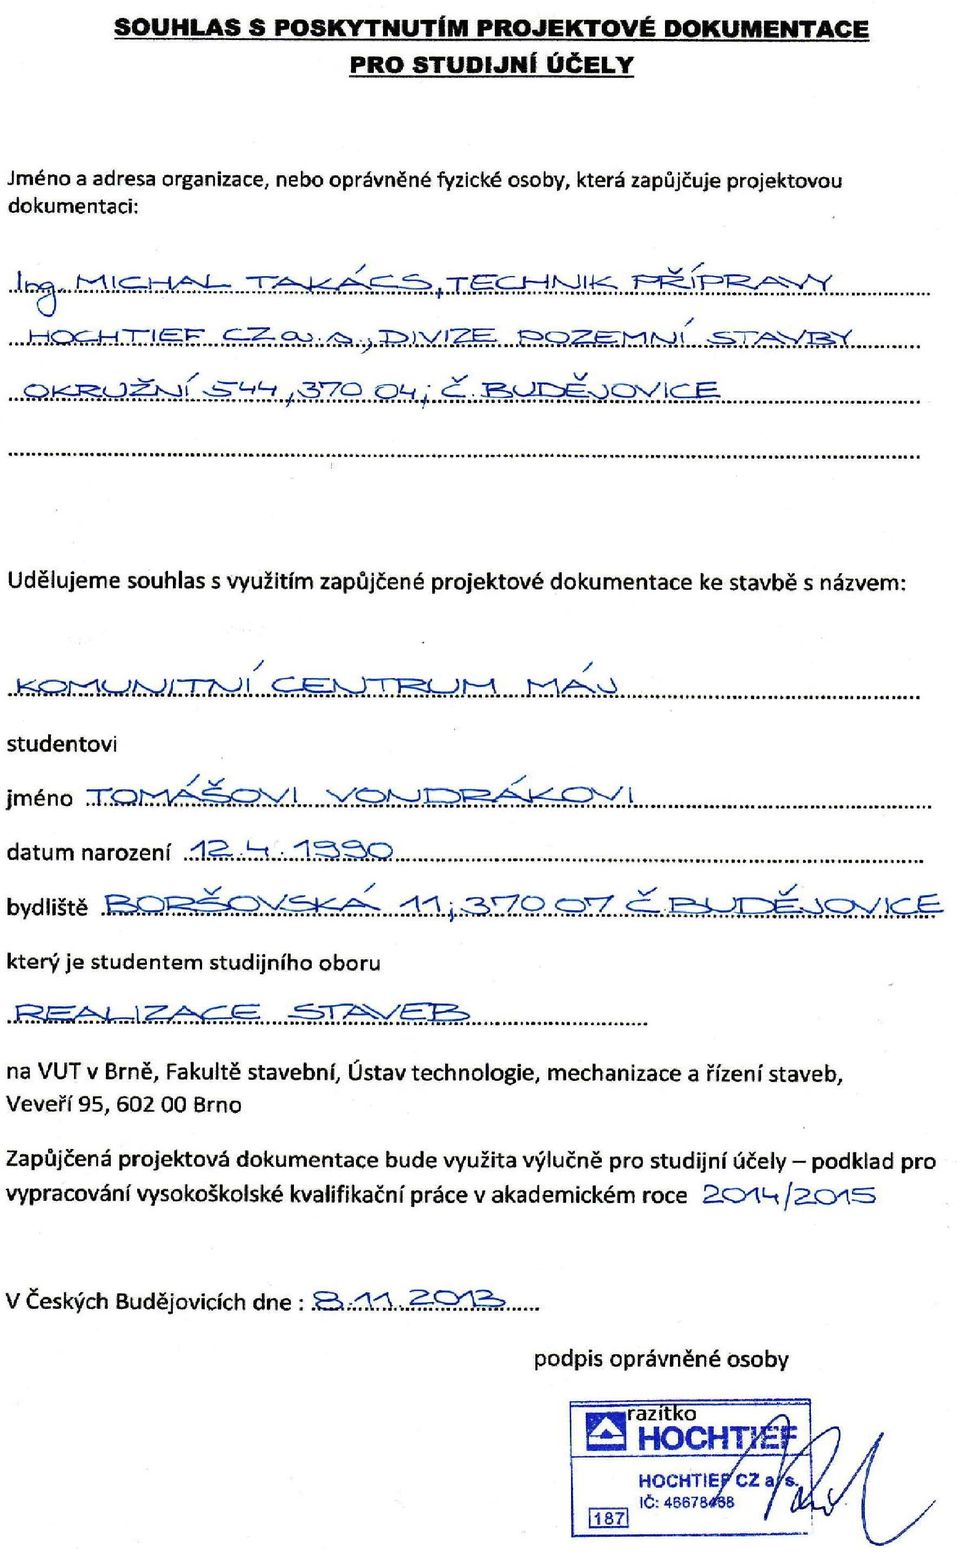 SOUHLAS S POSKYTNUTÍM PROJEKTOVÉ DOKUMENTACE
PRO STUDIJNÍ ÚČELY
Jméno a adresa organizace, nebo oprávněné fyzické osoby, která zapůjčuje projektovou
dokumentaci:
Ing. MICHAL TAKÁCS, TECHNIK PŘÍPRAVY
HOCHTIEF CZ a. s., DIVIZE POZEMNÍ STAVBY
OKRUŽNÍ 544, 370 04; Č. BUDĚJOVICE
Udělujeme souhlas s využitím zapůjčené projektové dokumentace ke stavbě s názvem:
KOMUNITNÍ CENTRUM MÁJ
studentovi
jméno TOMÁŠOVI VONDRÁKOVI
datum narození 12. 4. 1990
bydliště BORŠOVSKÁ 11; 370 07 Č. BUDĚJOVICE
který je studentem studijního oboru
REALIZACE STAVEB
na VUT v Brně, Fakultě stavební, Ústav technologie, mechanizace a řízení staveb,
Veveří 95, 602 00 Brno
Zapůjčená projektová dokumentace bude využita výlučně pro studijní účely – podklad pro
vypracování vysokoškolské kvalifikační práce v akademickém roce 2014/2015
V Českých Budějovicích dne : 8. 11. 2013
podpis oprávněné osoby
razítko
HOCHTIEF
HOCHTIEF CZ a.s.
IČ: 46678468
187